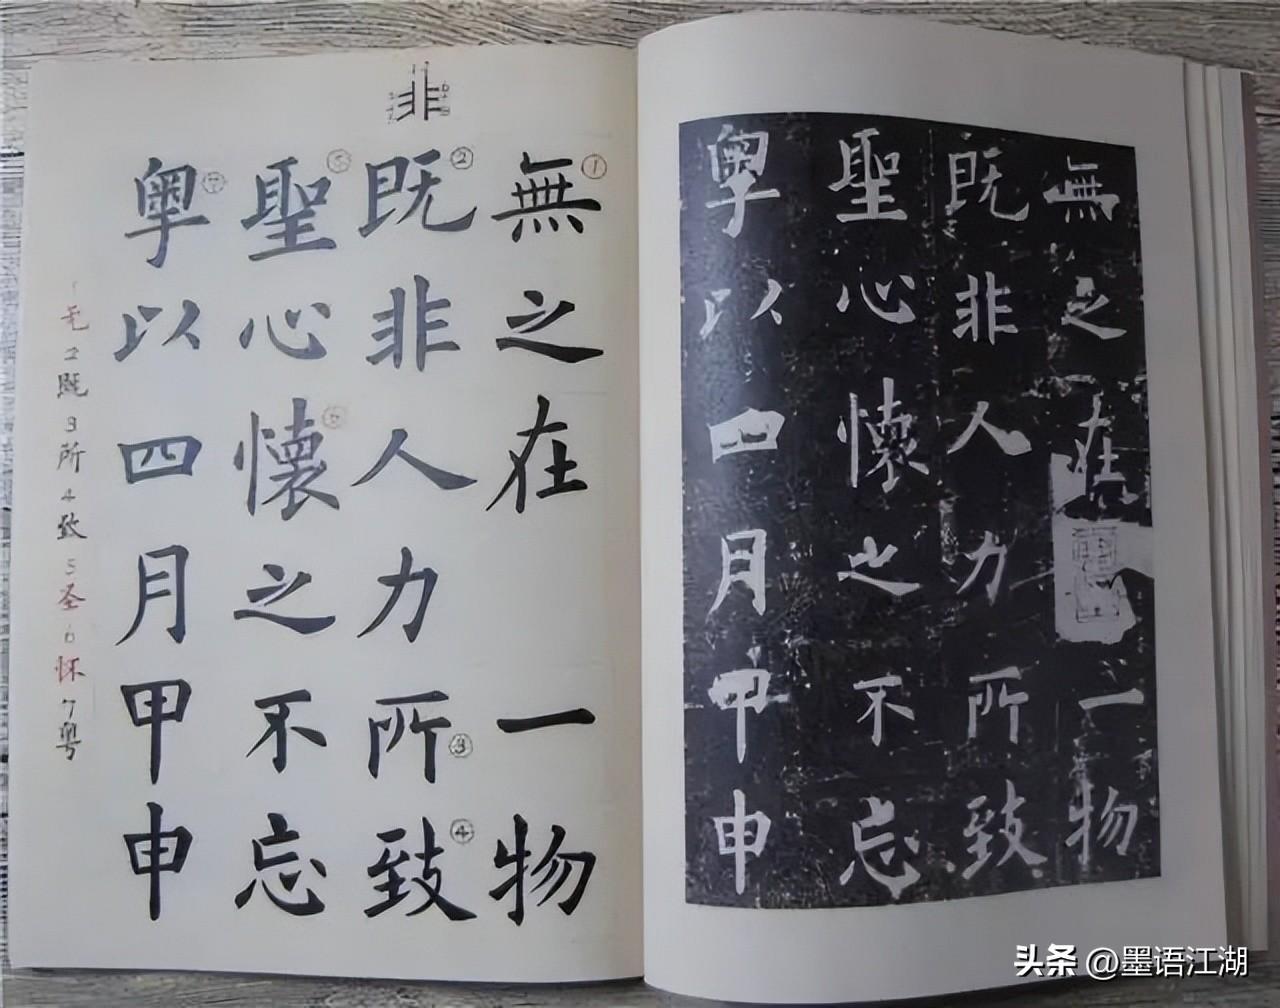 非
無①之在一物
既②非人力所③致④
聖⑤心懷⑥之不忘
粤⑦以四月甲申
1无2既3所4致5圣6怀7粤
無之在一物
既非人力所致
聖心懷之不忘
粤以四月甲申
头条 @墨语江湖